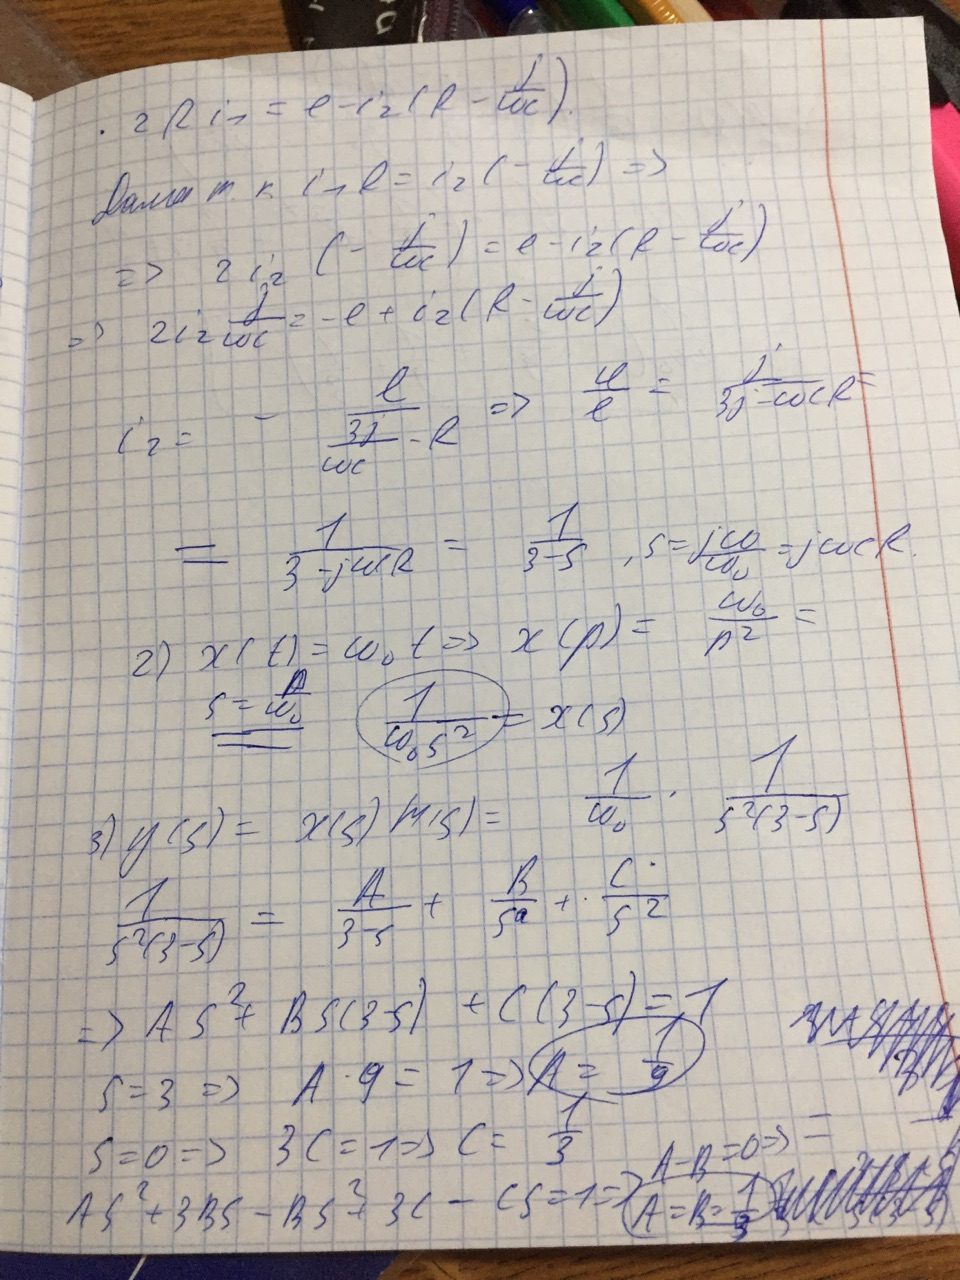 2Ri₁ = e - i₂(R - j/ωc).
Далее т. к i₁R = i₂(-j/ωc) =>
=> 2i₂(-j/ωc) = e - i₂(R - j/ωc)
=> 2i₂ j/ωc = -e + i₂(R - j/ωc)
i₂ = - e/(3j/ωc - R) => u/e = j/(3j - ωcR) =
= 1/(3 - jωcR) = 1/(3-s), s = jω/ω₀ = jωcR.
2) x(t) = ω₀t => x(p) = ω₀/p² =
s = p/ω₀ 1/(ω₀s²) = x(s)
3) y(s) = x(s)H(s) = 1/ω₀ · 1/(s²(3-s))
1/(s²(3-s)) = A/(3-s) + B/s + C/s²
=> As² + Bs(3-s) + C(3-s) = 1
s=3 => A·9 = 1 => A = 1/9
s=0 => 3C = 1 => C = 1/3
A-B=0 =>
As² + 3Bs - Bs² + 3C - Cs = 1 => A = B = 1/9